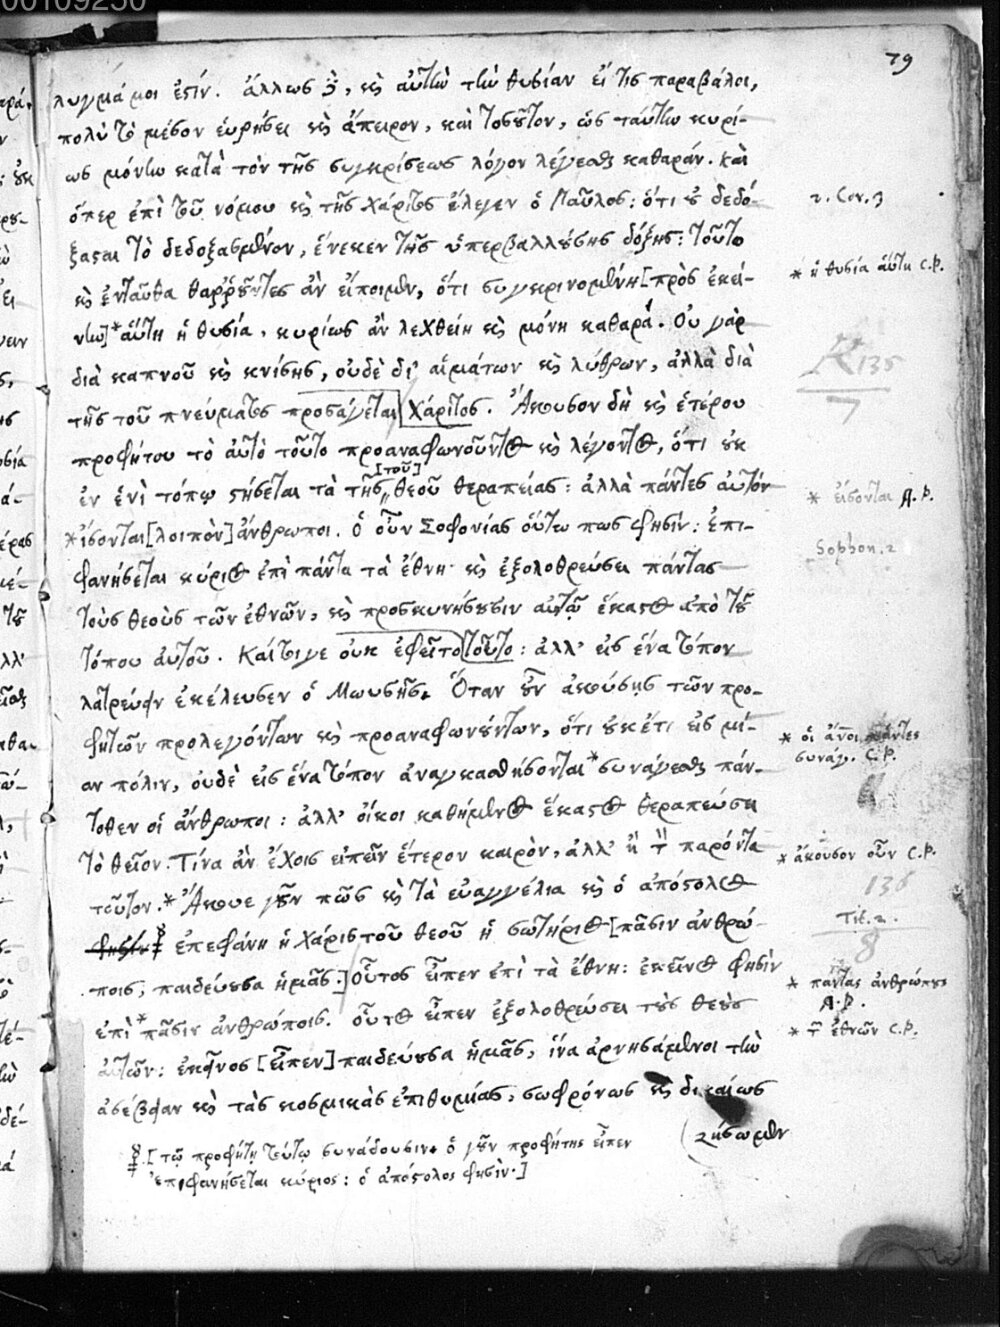 00109250
79
λυγμά μοι ἐστίν. ἄλλως δὲ, καὶ αὐτὴν τὴν θυσίαν εἴ τις παραβάλοι,
πολὺ τὸ μέσον εὑρήσει καὶ ἄπειρον, καὶ τοσοῦτον, ὡς ταύτην κυρί-
ως μόνην κατὰ τὸν τῆς συγκρίσεως λόγον λέγεσθαι καθαράν. καὶ
ὅπερ ἐπὶ τοῦ νόμου καὶ τῆς χάριτος ἔλεγεν ὁ Παῦλος: ὅτι οὐ δεδό-
2. Cor. 3
ξασται τὸ δεδοξασμένον, ἕνεκεν τῆς ὑπερβαλλούσης δόξης: τοῦτο
* ἡ θυσία αὕτη C. P.
καὶ ἐνταῦθα θαρροῦντες ἂν εἴποιμεν, ὅτι συγκρινομένη [πρὸς ἐκεί-
νην] * αὕτη ἡ θυσία, κυρίως ἂν λεχθείη καὶ μόνη καθαρά. Οὐ γὰρ
διὰ καπνοῦ καὶ κνίσης, οὐδὲ δι' αἱμάτων καὶ λύθρων, ἀλλὰ διὰ
R 135
7
τῆς τοῦ πνεύματος προσάγεται χάριτος. Ἄκουσον δὴ καὶ ἑτέρου
προφήτου τὸ αὐτὸ τοῦτο προαναφωνοῦντος καὶ λέγοντος, ὅτι οὐκ
[τοῦ]
ἐν ἑνὶ τόπῳ στήσεται τὰ τῆς θεοῦ θεραπείας: ἀλλὰ πάντες αὐτόν
* εἴσονται A. P.
* ἴσονται [λοιπὸν] ἄνθρωποι. ὁ οὖν Σοφονίας οὕτω πως φησίν: ἐπι-
Sophon. 2
φανήσεται κύριος ἐπὶ πάντα τὰ ἔθνη καὶ ἐξολοθρεύσει πάντας
τοὺς θεοὺς τῶν ἐθνῶν, καὶ προσκυνήσουσιν αὐτῷ ἕκαστος ἀπὸ τοῦ
τόπου αὐτοῦ. Καίτοιγε οὐκ ἐφεῖτο τοῦτο: ἀλλ' εἰς ἕνα τόπον
λατρεύειν ἐκέλευσεν ὁ Μωυσῆς. Ὅταν οὖν ἀκούσῃς τῶν προ-
φητῶν προλεγόντων καὶ προαναφωνούντων, ὅτι οὐκέτι εἰς μί-
* οἱ ἄνοι πάντες
συνάγ. C. P.
αν πόλιν, οὐδὲ εἰς ἕνα τόπον ἀναγκασθήσονται * συνάγεσθαι πάν-
τοθεν οἱ ἄνθρωποι: ἀλλ' οἴκοι καθήμενος ἕκαστος θεραπεύσει
τὸ θεῖον. Τίνα ἂν ἔχοις εἰπεῖν ἕτερον καιρὸν, ἀλλ' ἢ τὸν παρόντα
* ἄκουσον οὖν C. P.
136
τοῦτον. * Ἄκουε γοῦν πῶς καὶ τὰ εὐαγγέλια καὶ ὁ ἀπόστολος
Tit. 2.
8
ἐπεφάνη ἡ χάρις τοῦ θεοῦ ἡ σωτήριος [πᾶσιν ἀνθρώ-
ποις, παιδεύουσα ἡμᾶς.] οὗτος εἶπεν ἐπὶ τὰ ἔθνη: ἐκεῖνος φησὶν
* πάντας ἀνθρώπους
A. P.
ἐπὶ * πᾶσιν ἀνθρώποις. οὗτος εἶπεν ἐξολοθρεύσει τοὺς θεοὺς
* τῶν ἐθνῶν C. P.
αὐτῶν: ἐκεῖνος [εἶπεν] παιδεύουσα ἡμᾶς, ἵνα ἀρνησάμενοι τὴν
ἀσέβειαν καὶ τὰς κοσμικὰς ἐπιθυμίας, σωφρόνως καὶ δικαίως
ζήσωμεν
[τῷ προφήτῃ τούτῳ συνάδουσιν. ὁ γοῦν προφήτης εἶπεν
ἐπιφανήσεται κύριος: ὁ ἀπόστολος φησίν.]